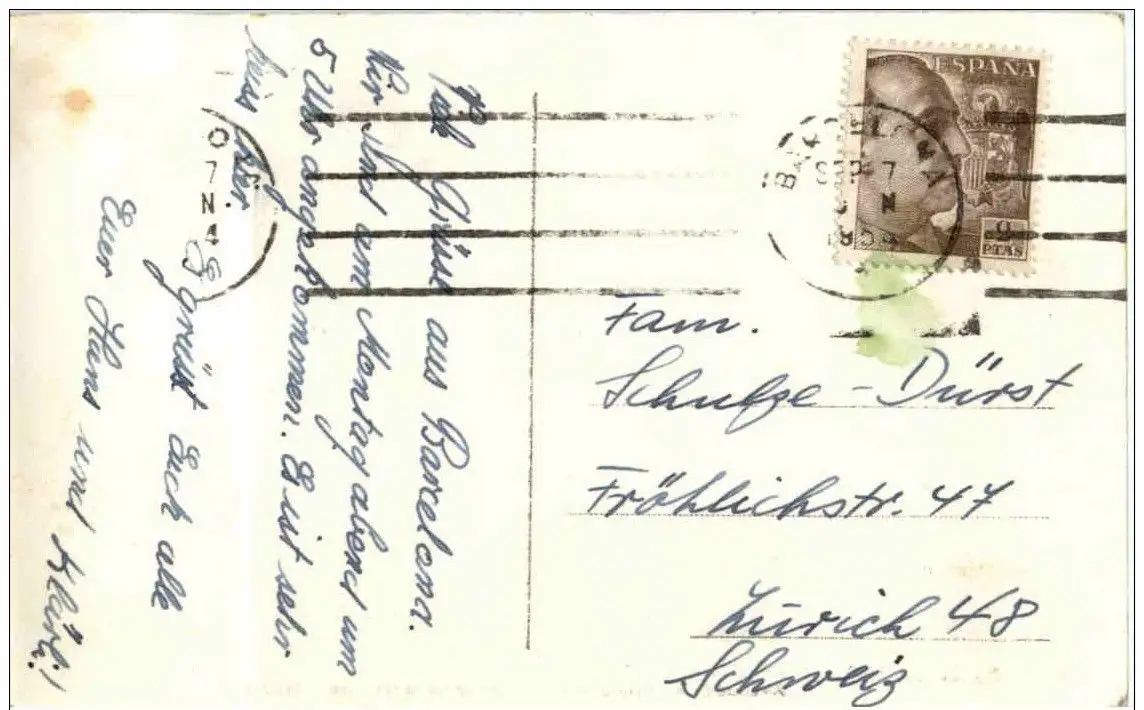 Viele Grüsse aus Barcelona.
Wir sind am Montag abend um
5 Uhr angekommen. Es ist sehr
heiss hier
Es grüsst Euch alle
Euer Hans und Klärli!
ESPAÑA
PTAS
Fam.
Schulze-Dürst
Fröhlichstr. 47
Zürich 48
Schweiz